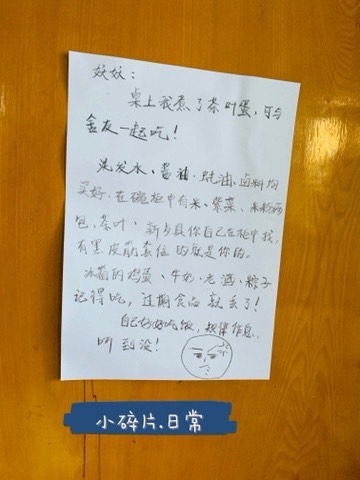 妏妏：
桌上我煮了茶叶蛋，可与
金友一起吃！
洗发水、酱油、蚝油、卤料均
买好．在碗柜中有米、紫菜、米粉两
包、茶叶、新乡县你自己在柜中找，
有黑皮筋套住的就是你的。
冰箱的鸡蛋、牛奶、老酒、粽子
记得吃，过期食品就丢了！
自己好好吃饭，规律作息．
听到没！
小碎片.日常